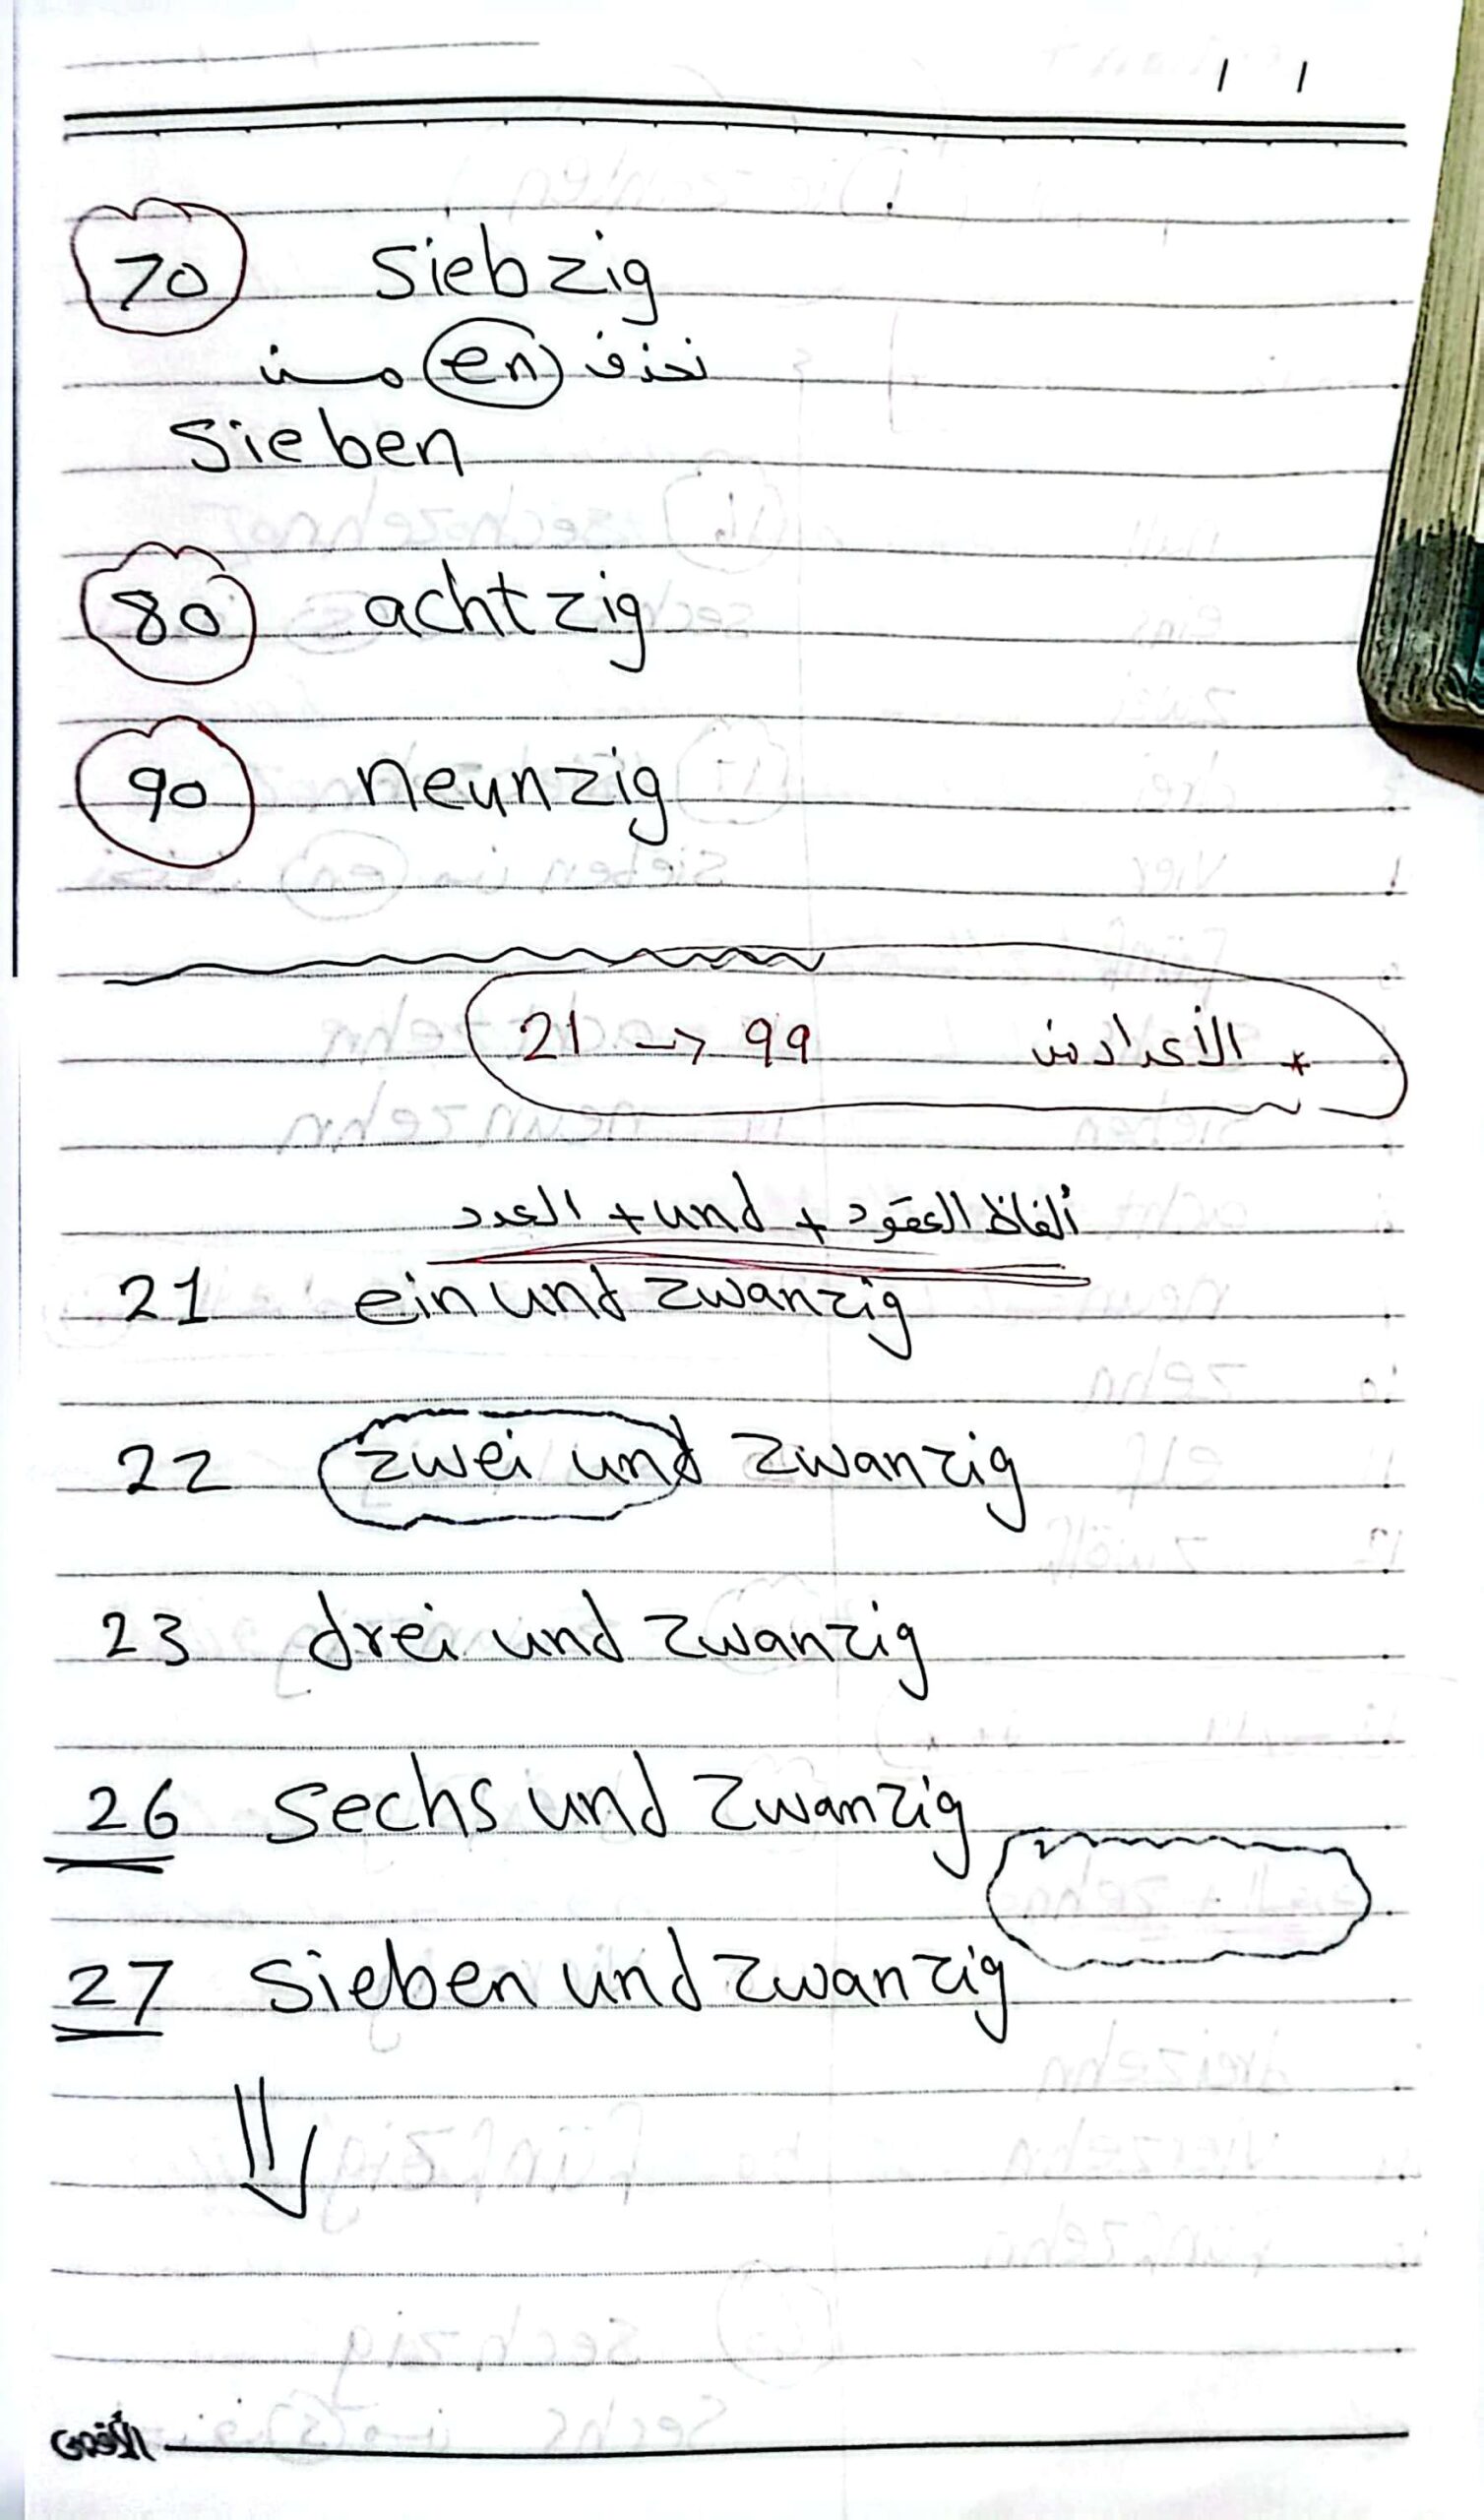 70 siebzig
نحذف en من
sieben
80 achtzig
90 neunzig
* الأعداد من 21 → 99
ألفاظ العقود + und + العدد
21 ein und zwanzig
22 zwei und zwanzig
23 drei und zwanzig
26 sechs und zwanzig
27 sieben und zwanzig